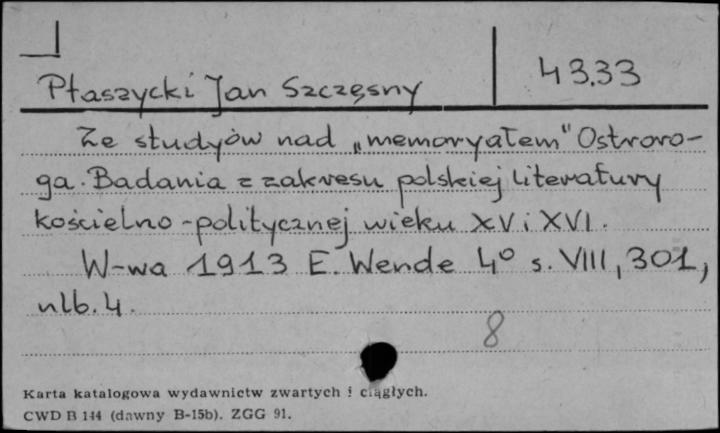 Ptaszycki Jan Szczęsny 4333
Ze studyów nad „memoryałem" Ostroro-
ga. Badania z zakresu polskiej literatury
kościelno-politycznej wieku XV i XVI.
W-wa 1913 E. Wende 4° s. VIII, 301,
nlb. 4.
8
Karta katalogowa wydawnictw zwartych i ciągłych.
CWD B 144 (dawny B-15b). ZGG 91.